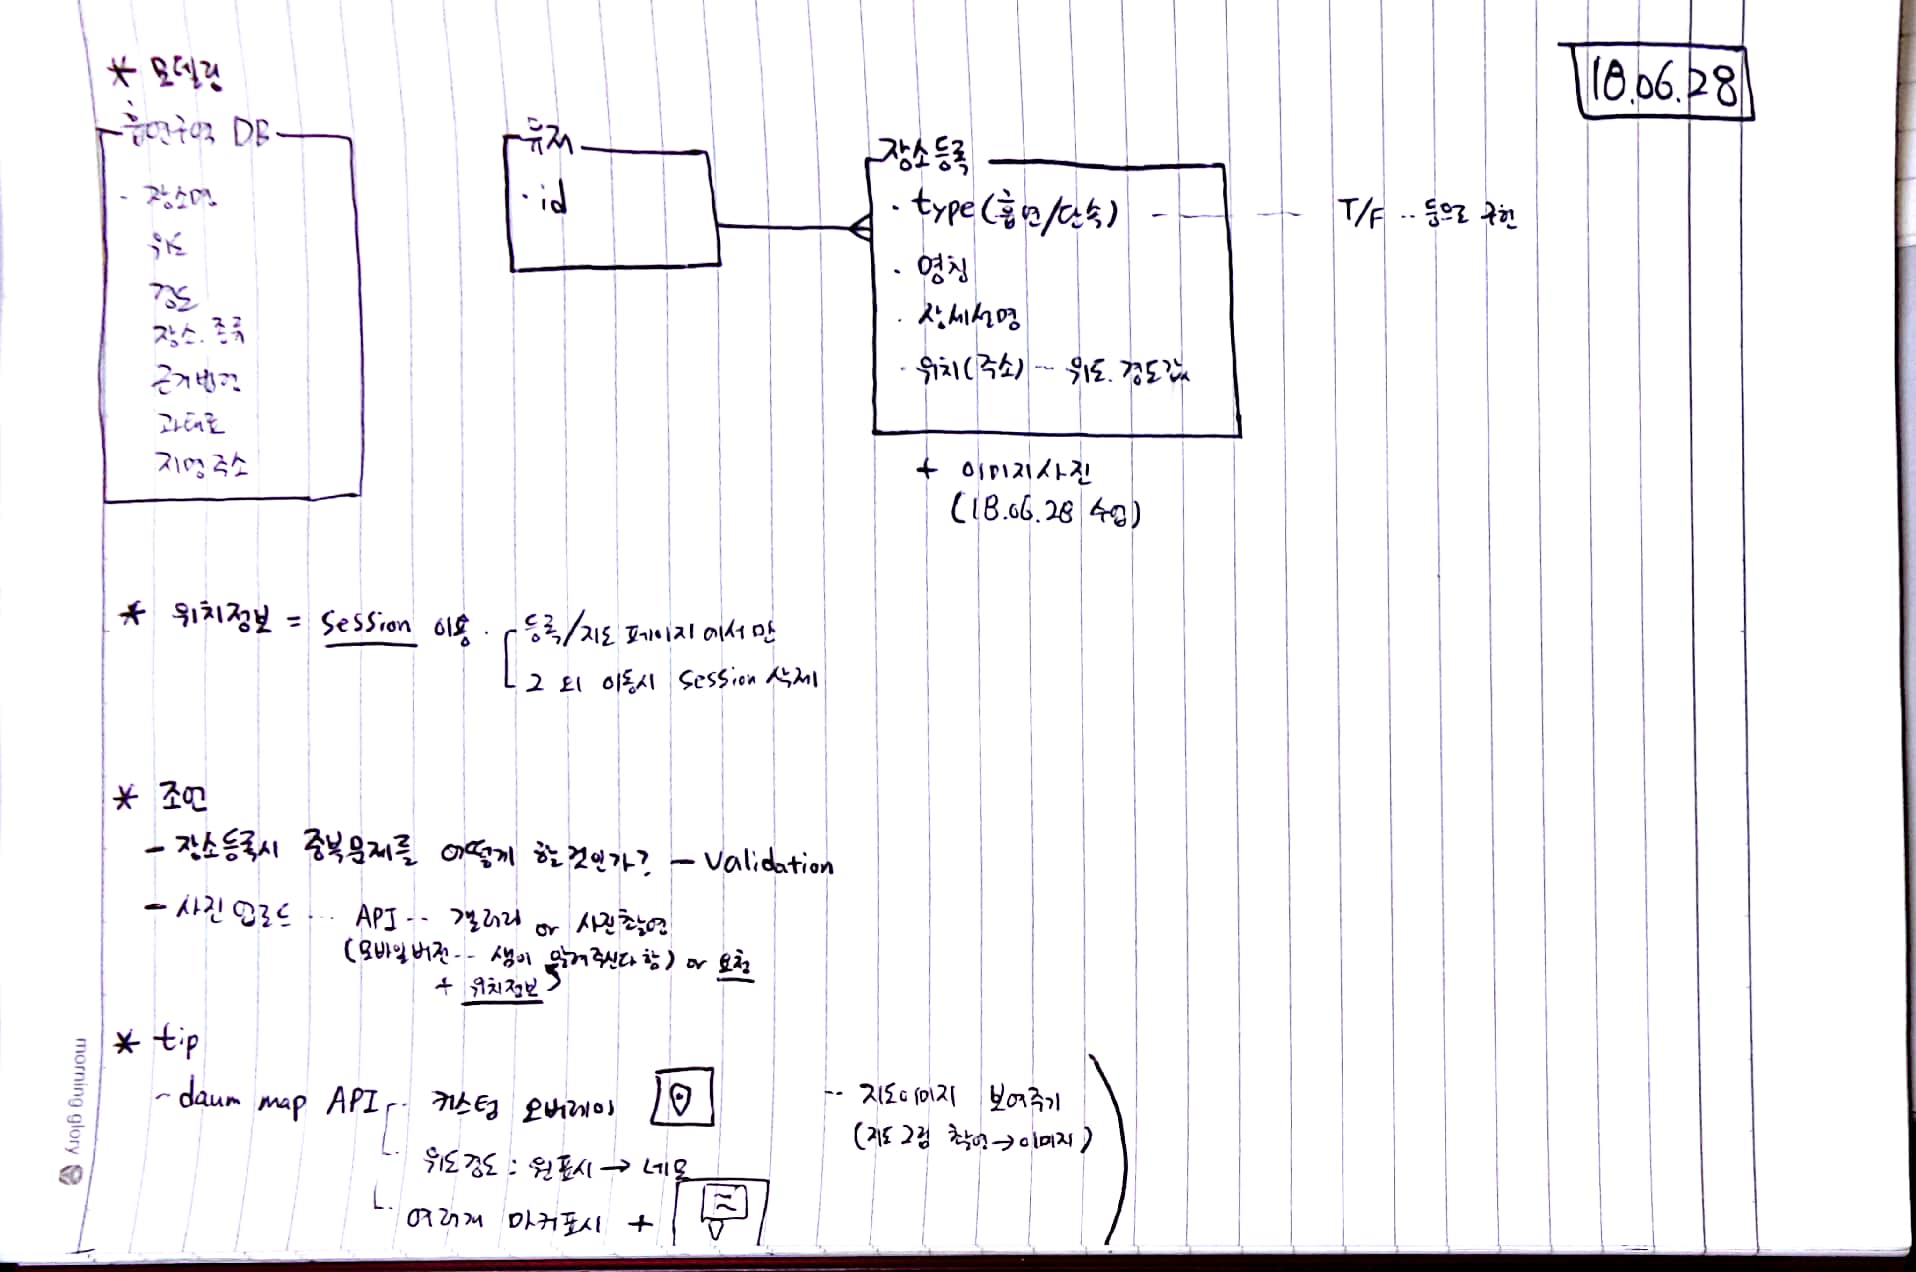 * 모델링
18.06.28
흡연구역 DB
- 장소명
위도
경도
장소.종류
근거법령
과태료
지명주소
유저
· id
장소등록
· type(흡연/단속) --- T/F .. 등으로 구현
· 명칭
· 상세설명
· 위치(주소) -- 위도.경도값
+ 이미지사진
(18.06.28 수업)
* 위치정보 = Session 이용. 등록/지도 페이지에서만
그 외 이동시 Session 삭제
* 조언
- 장소등록시 중복문제를 어떻게 할것인가? - Validation
- 사진업로드 ... API -- 갤러리 or 사진촬영
(모바일버전 -- 샘이 알려주신다함) or 요청
+ 위치정보
* tip
- daum map API -- 커스텀 오버레이
-- 지도이미지 보여주기
(지도그림 촬영→이미지)
위도경도 : 원표시 → 네모
여러개 마커표시 +
morning glory